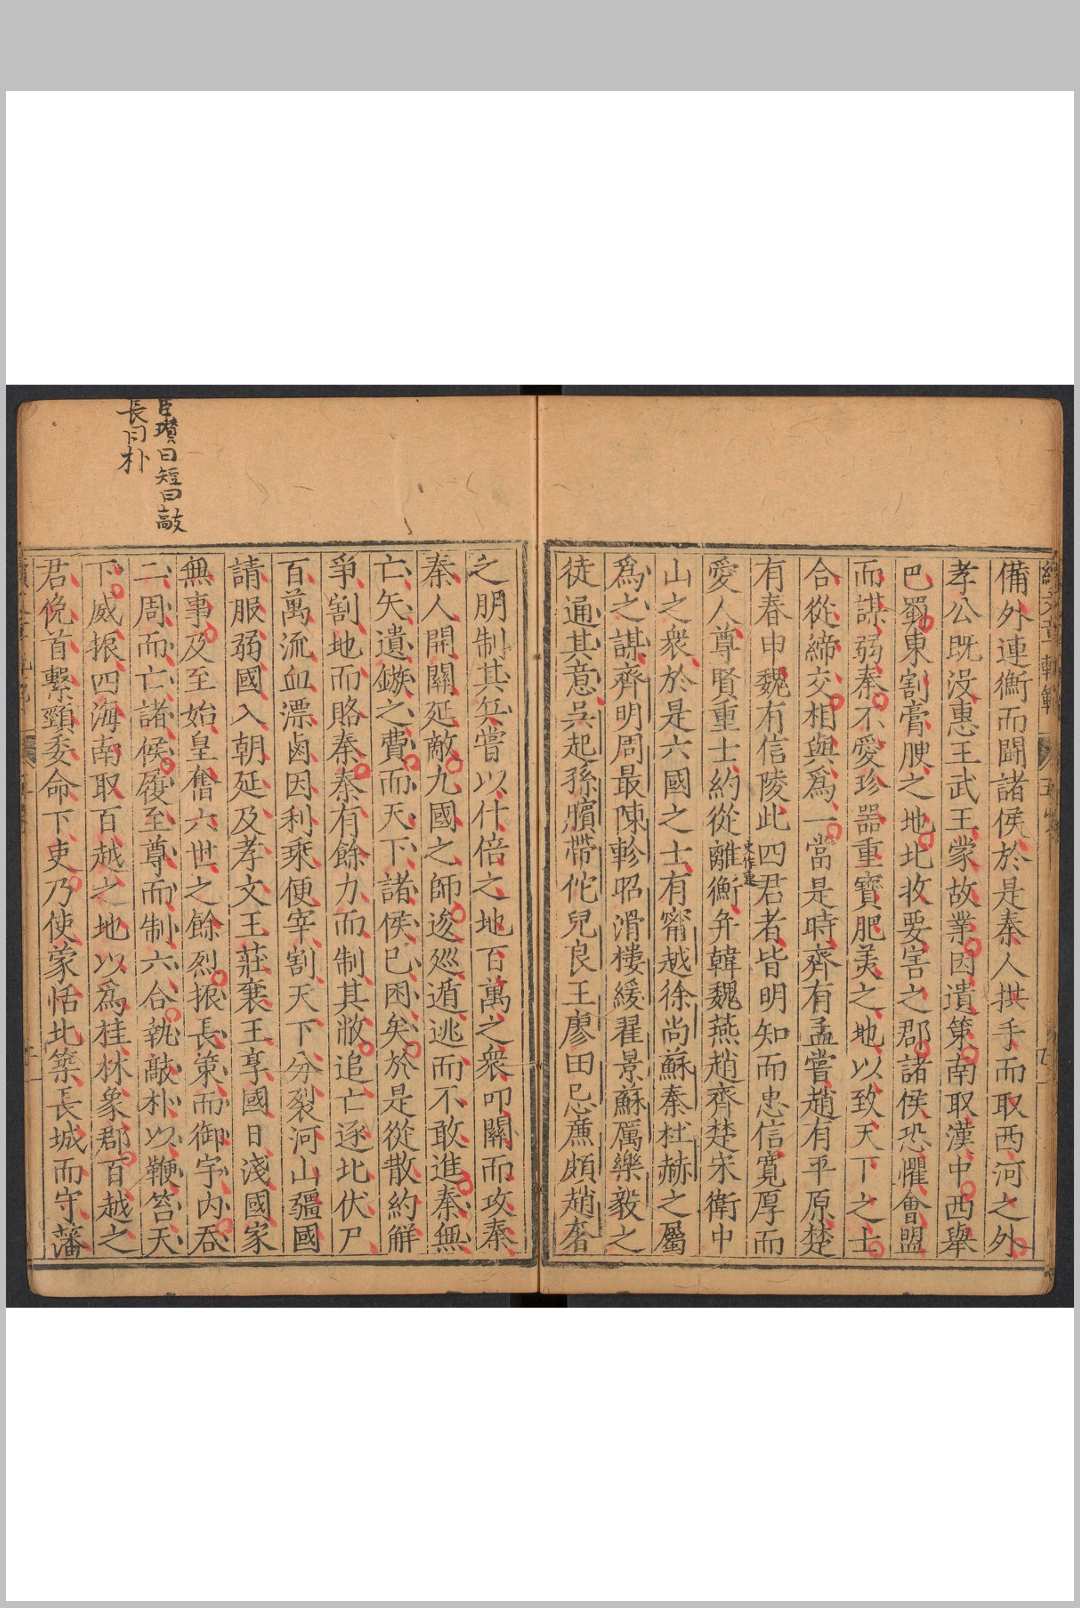 備外連衡而鬪諸侯於是秦人拱手而取西河之外
孝公既没惠王武王蒙故業因遺策南取漢中西舉
巴蜀東割膏腴之地北收要害之郡諸侯恐懼會盟
而謀弱秦不愛珍器重寶肥美之地以致天下之士
合從締交相與爲一當是時齊有孟嘗趙有平原楚
有春申魏有信陵此四君者皆明知而忠信寬厚而
愛人尊賢重士約從離衡并韓魏燕趙齊楚宋衛中
山之衆於是六國之士有甯越徐尚蘇秦杜赫之屬
爲之謀齊明周最陳軫昭滑樓緩翟景蘇厲樂毅之
徒通其意吳起孫臏帶佗兒良王廖田忌廉頗趙奢
之朋制其兵嘗以什倍之地百萬之衆叩關而攻秦
秦人開關延敵九國之師逡巡遁逃而不敢進秦無
亡矢遺鏃之費而天下諸侯已困矣於是從散約解
爭割地而賂秦秦有餘力而制其敝追亡逐北伏尸
百萬流血漂鹵因利乘便宰割天下分裂河山疆國
請服弱國入朝延及孝文王莊襄王享國日淺國家
無事及至始皇奮六世之餘烈振長策而御宇内吞
二周而亡諸侯履至尊而制六合執敲朴以鞭笞天
下威振四海南取百越之地以爲桂林象郡百越之
君俛首繫頸委命下吏乃使蒙恬北築長城而守藩
臣瓚曰短曰敲
長曰朴